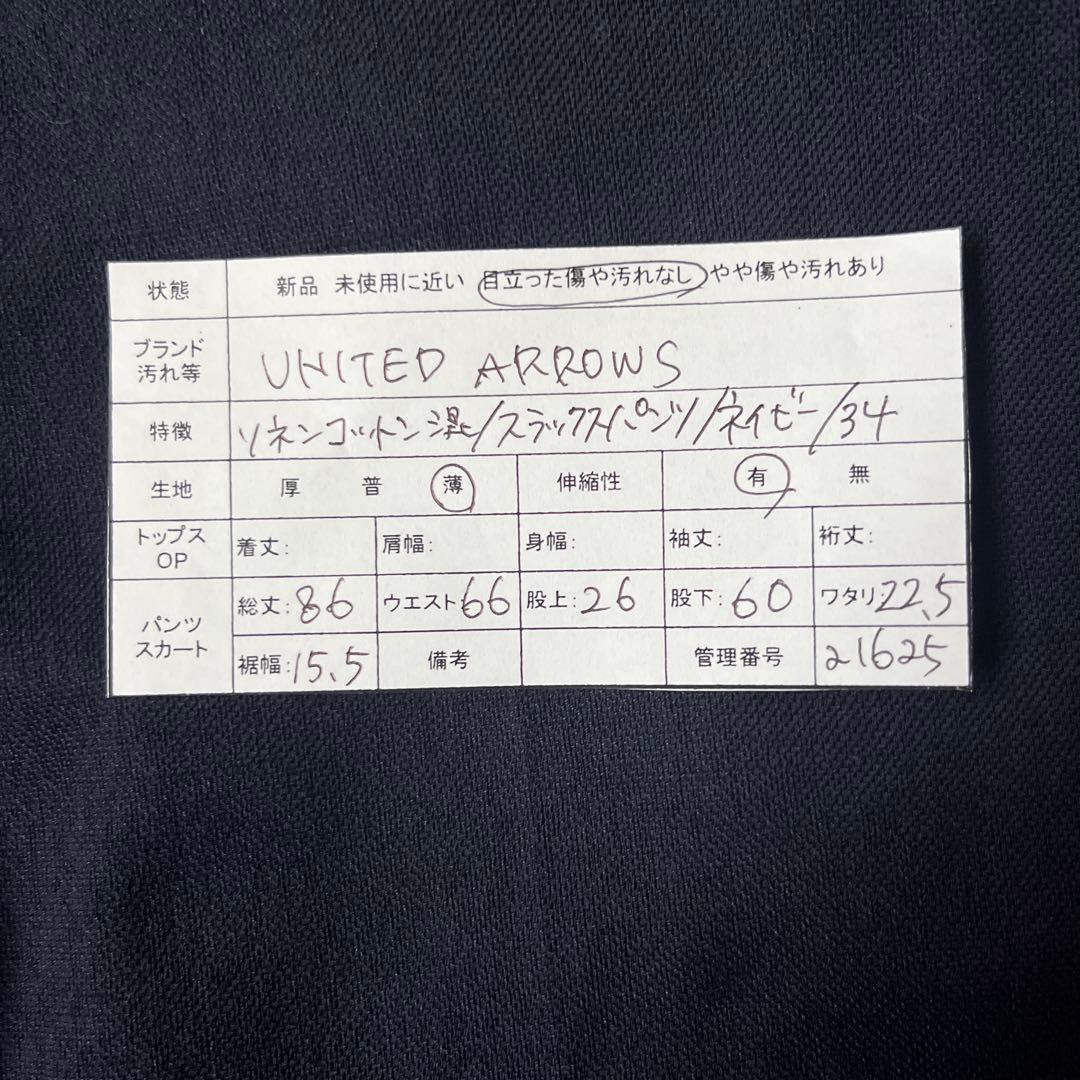 状態 新品 未使用に近い 目立った傷や汚れなし やや傷や汚れあり
ブランド
汚れ等 UNITED ARROWS
特徴 リネンコットン混/スラックスパンツ/ネイビー/34
生地 厚 普 薄 伸縮性 有 無
トップス
OP 着丈: 肩幅: 身幅: 袖丈: 裄丈:
パンツ
スカート 総丈:86 ウエスト66 股上:26 股下:60 ワタリ:22.5
裾幅:15.5 備考 管理番号 21625